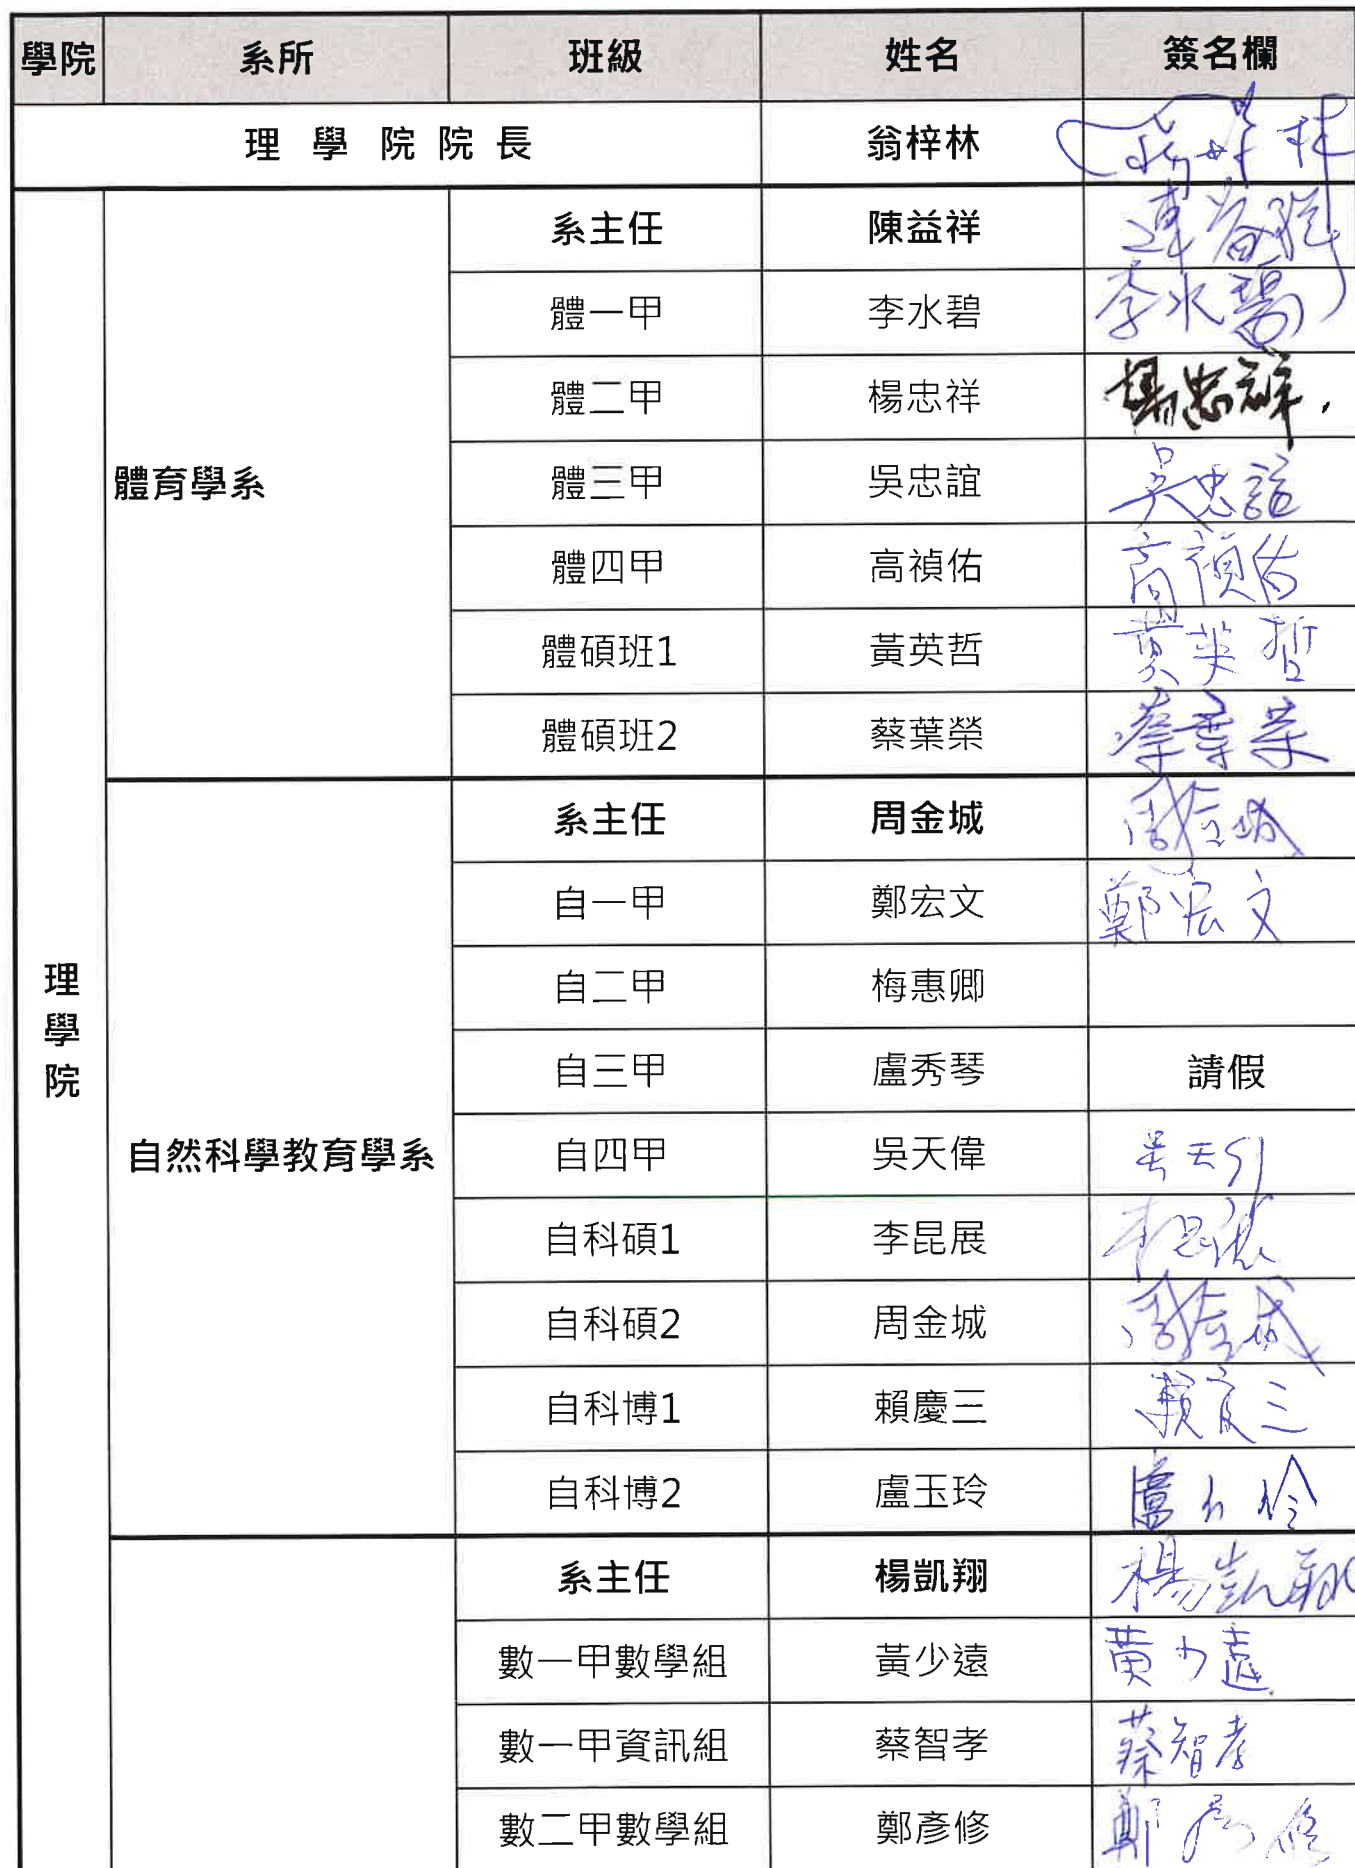 學院 系所 班級 姓名 簽名欄
理學院院長 翁梓林 翁梓林
系主任 陳益祥 陳益祥
體一甲 李水碧 李水碧
體二甲 楊忠祥 楊忠祥
體育學系 體三甲 吳忠誼 吳忠誼
體四甲 高禎佑 高禎佑
體碩班1 黃英哲 黃英哲
體碩班2 蔡葉榮 蔡葉榮
系主任 周金城 周金城
自一甲 鄭宏文 鄭宏文
理學院 自二甲 梅惠卿
自三甲 盧秀琴 請假
自然科學教育學系 自四甲 吳天偉 吳天偉
自科碩1 李昆展 李昆展
自科碩2 周金城 周金城
自科博1 賴慶三 賴慶三
自科博2 盧玉玲 盧玉玲
系主任 楊凱翔 楊凱翔
數一甲數學組 黃少遠 黃少遠
數一甲資訊組 蔡智孝 蔡智孝
數二甲數學組 鄭彥修 鄭彥修